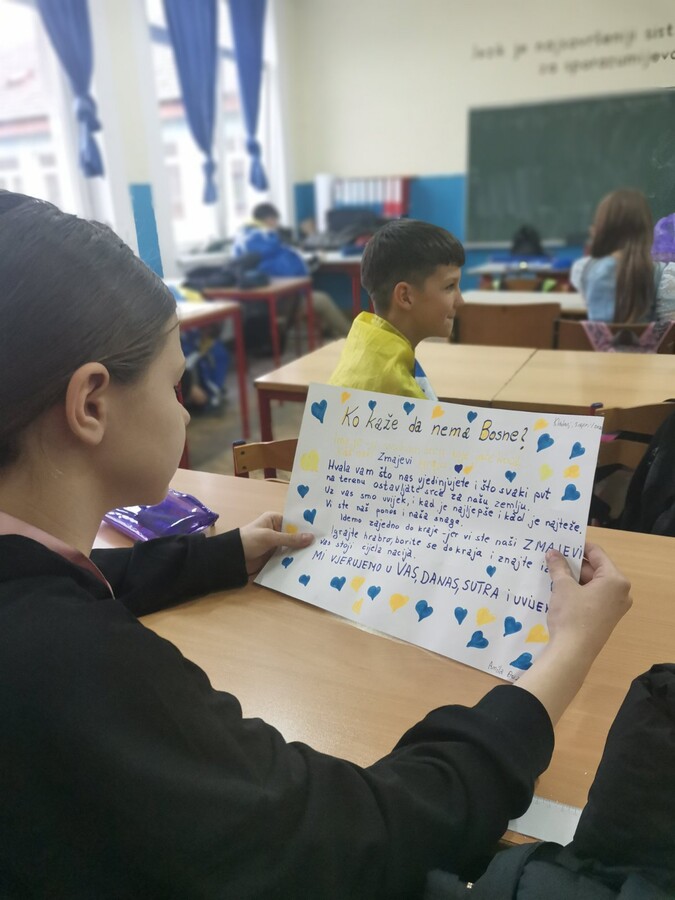 Jezik je najsavršeniji
za sporazumijeva
Ko kaže da nema Bosne?
Zmajevi
Hvala vam što nas ujedinjujete i što svaki put
na terenu ostavljate srce za našu zemlju.
Uz vas smo uvijek, i kad je najljepše i kad je najteže.
Vi ste naš ponos i naša snaga.
Idemo zajedno do kraja -jer vi ste naši ZMAJEVI
Igrajte hrabro, borite se do kraja i znajte
vas stoji cijela nacija.
MI VJERUJEMO U VAS, DANAS, SUTRA i UVIJEK